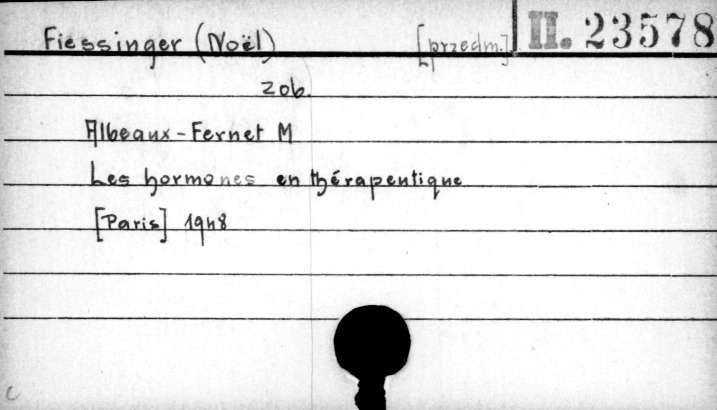 Fiessinger (Noël) [przedm.] II. 23578
zob.
Albeaux-Fernet M
Les hormones en thérapeutique
[Paris] 1948
C